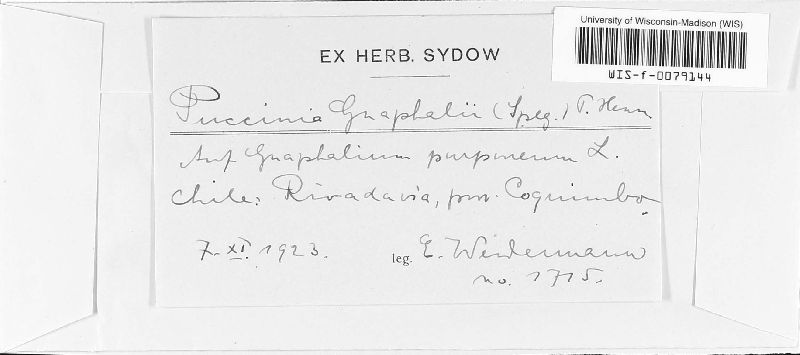 University of Wisconsin-Madison (WIS)
WIS-f-0079144
EX HERB. SYDOW
Puccinia Gnaphalii (Speg.) P. Henn.
Auf Gnaphalium purpureum L.
Chile: Rivadavia, prov. Coquimbo.
7. XI. 1923. leg. E. Werdermann
no. 1715.